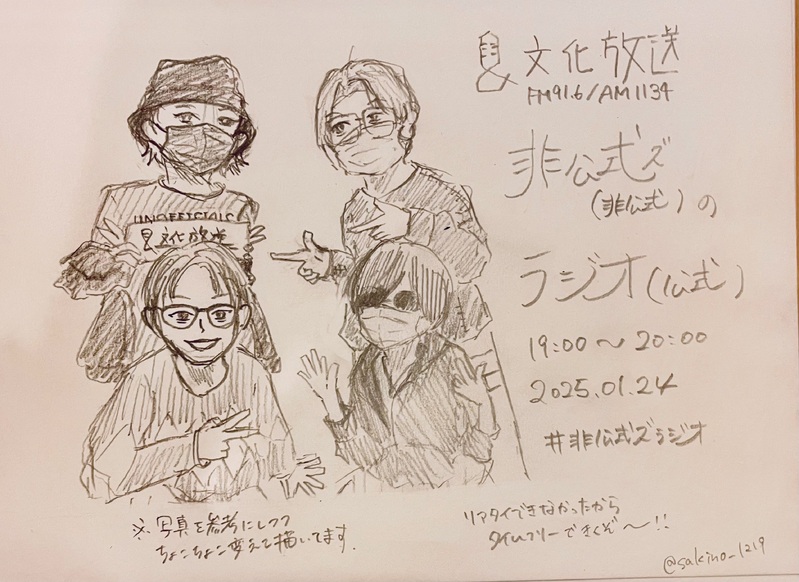 文化放送
FM91.6/AM1134
非公式ズ
(非公式)の
ラジオ(公式)
19:00〜20:00
2025.01.24
#非公式ズラジオ
UNOFFICIALS
文化放送
※写真を参考にしつつ
ちょこちょこ変えて描いてます.
リアタイできなかったから
タイムフリーできくぞ〜!!
@sakino_1219